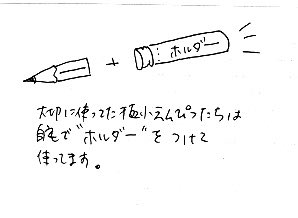 ホルダー
大切に使ってた極小えんぴつたちは
自宅で"ホルダー"をつけて
使ってます。